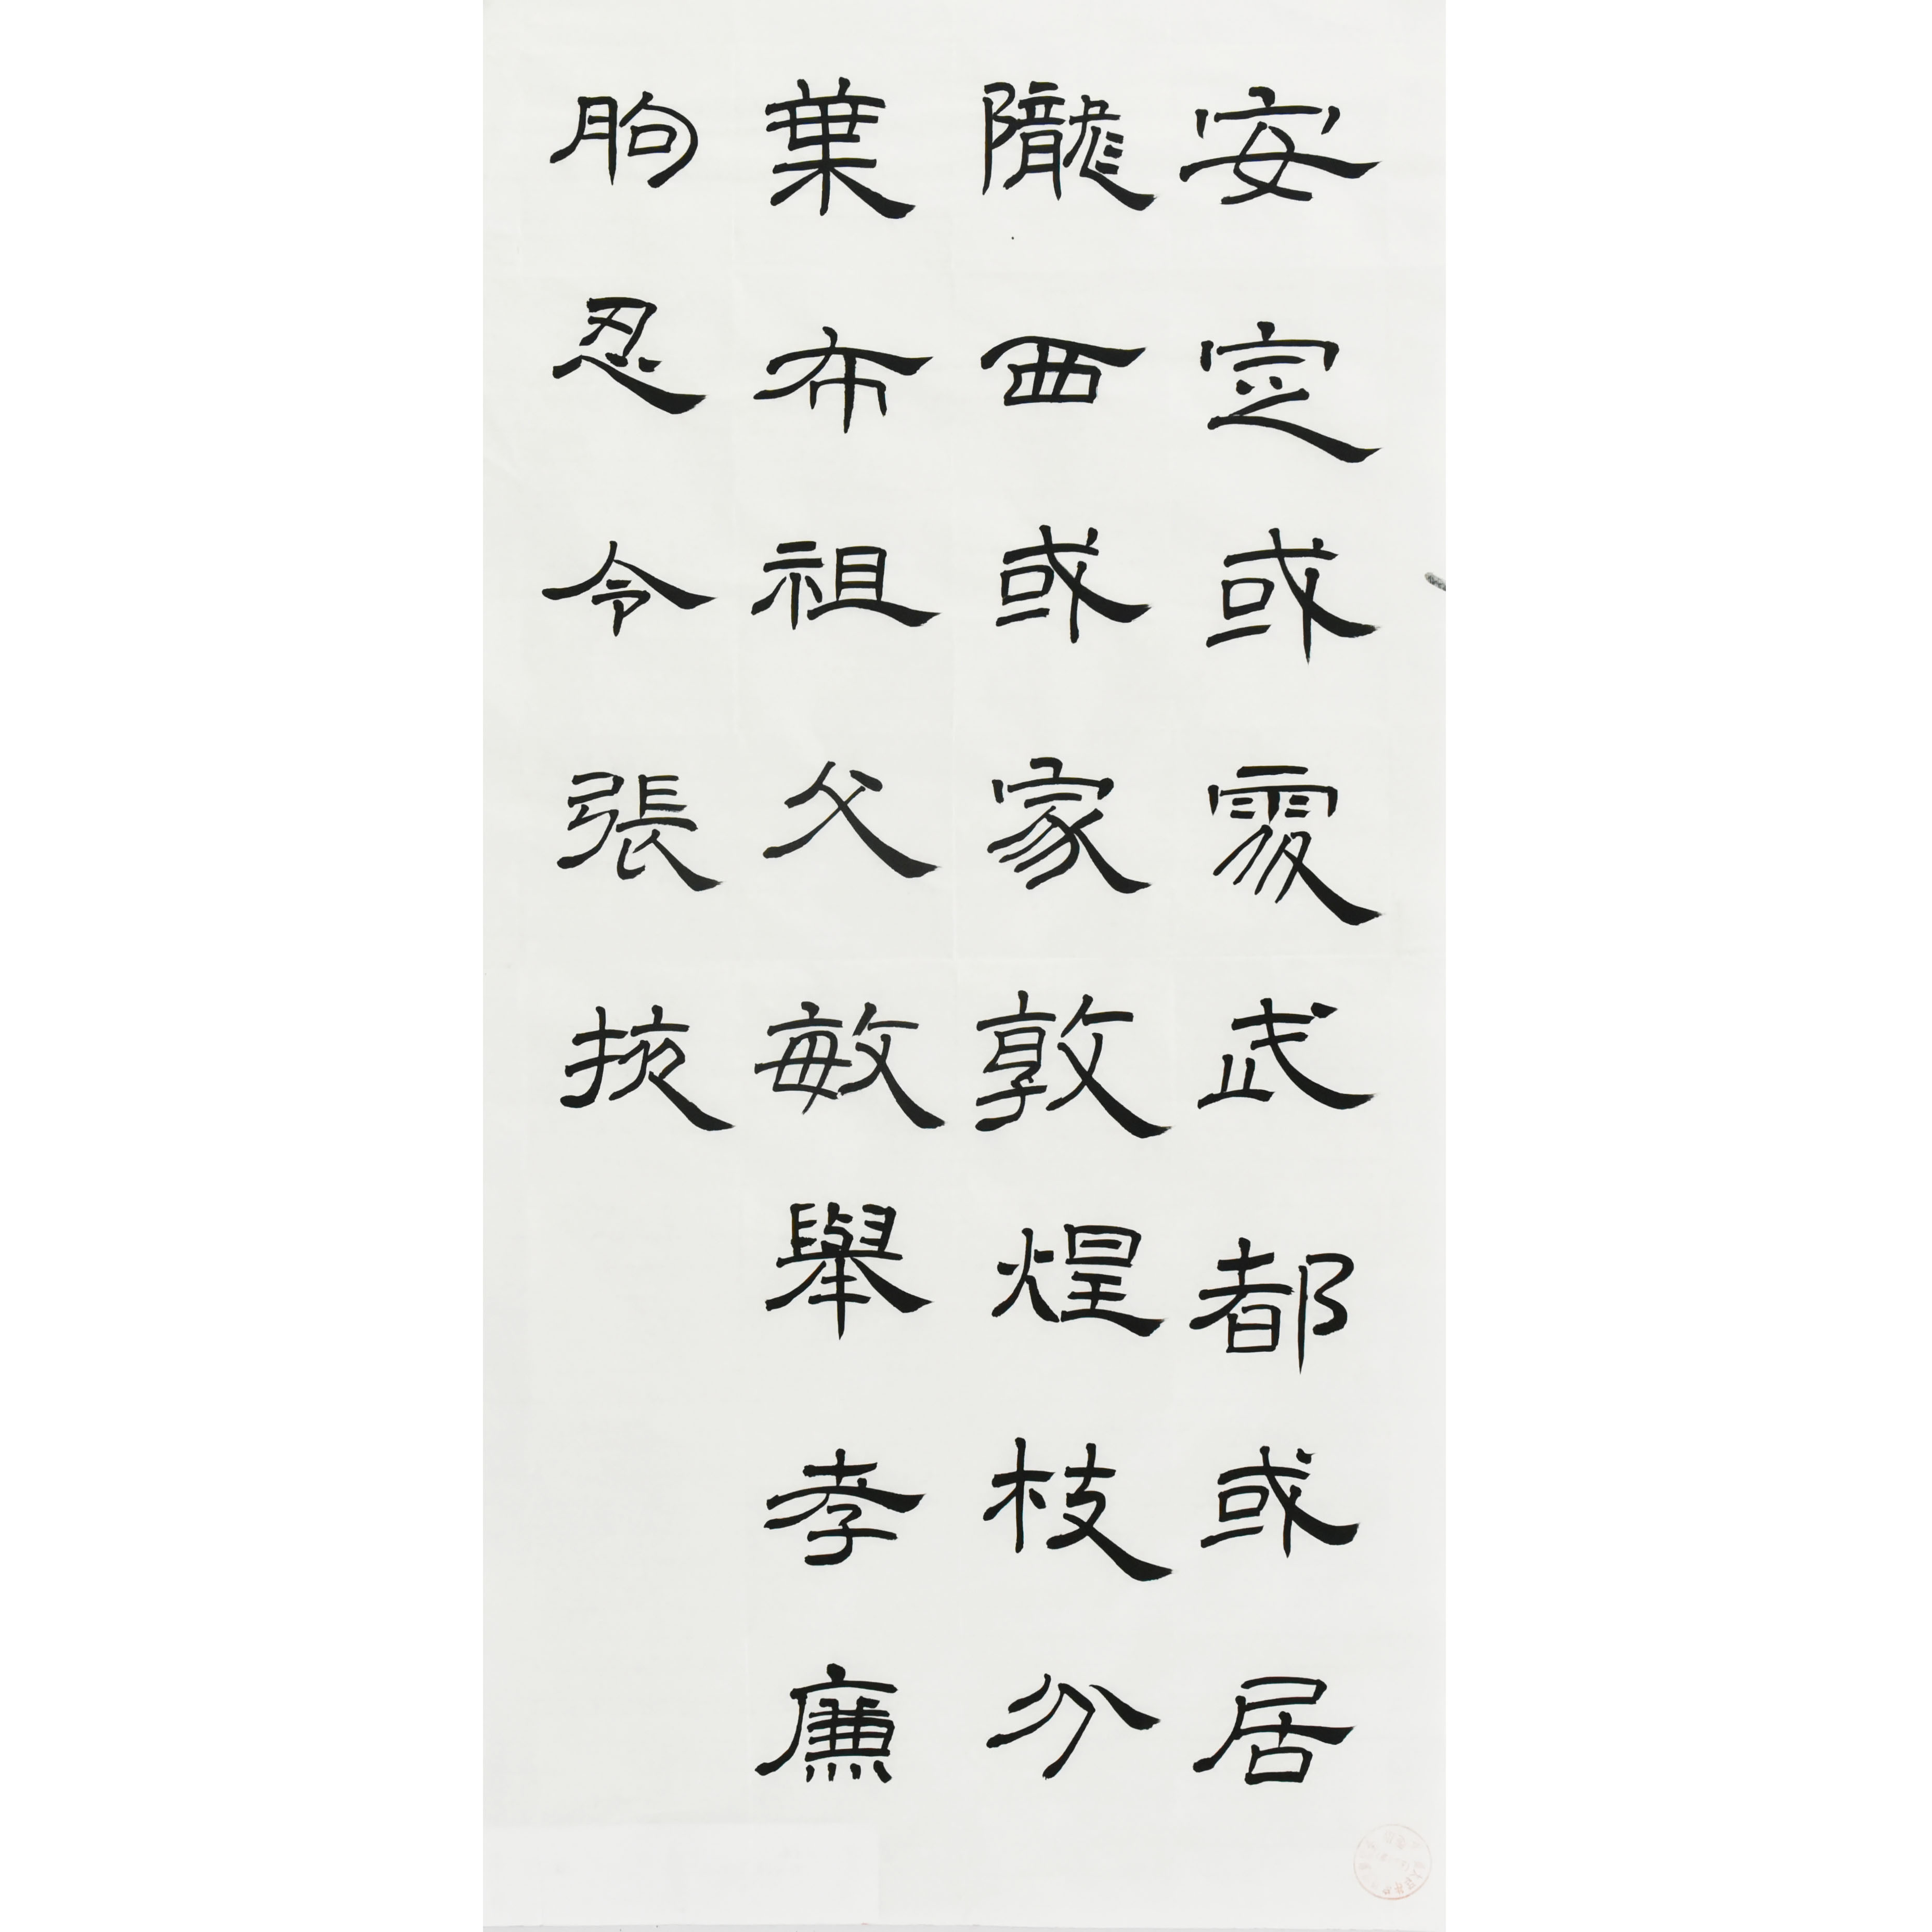 安定或處武都或居
隴西或家敦煌枝分
葉布祖父敏舉孝廉
朐忍令張掖